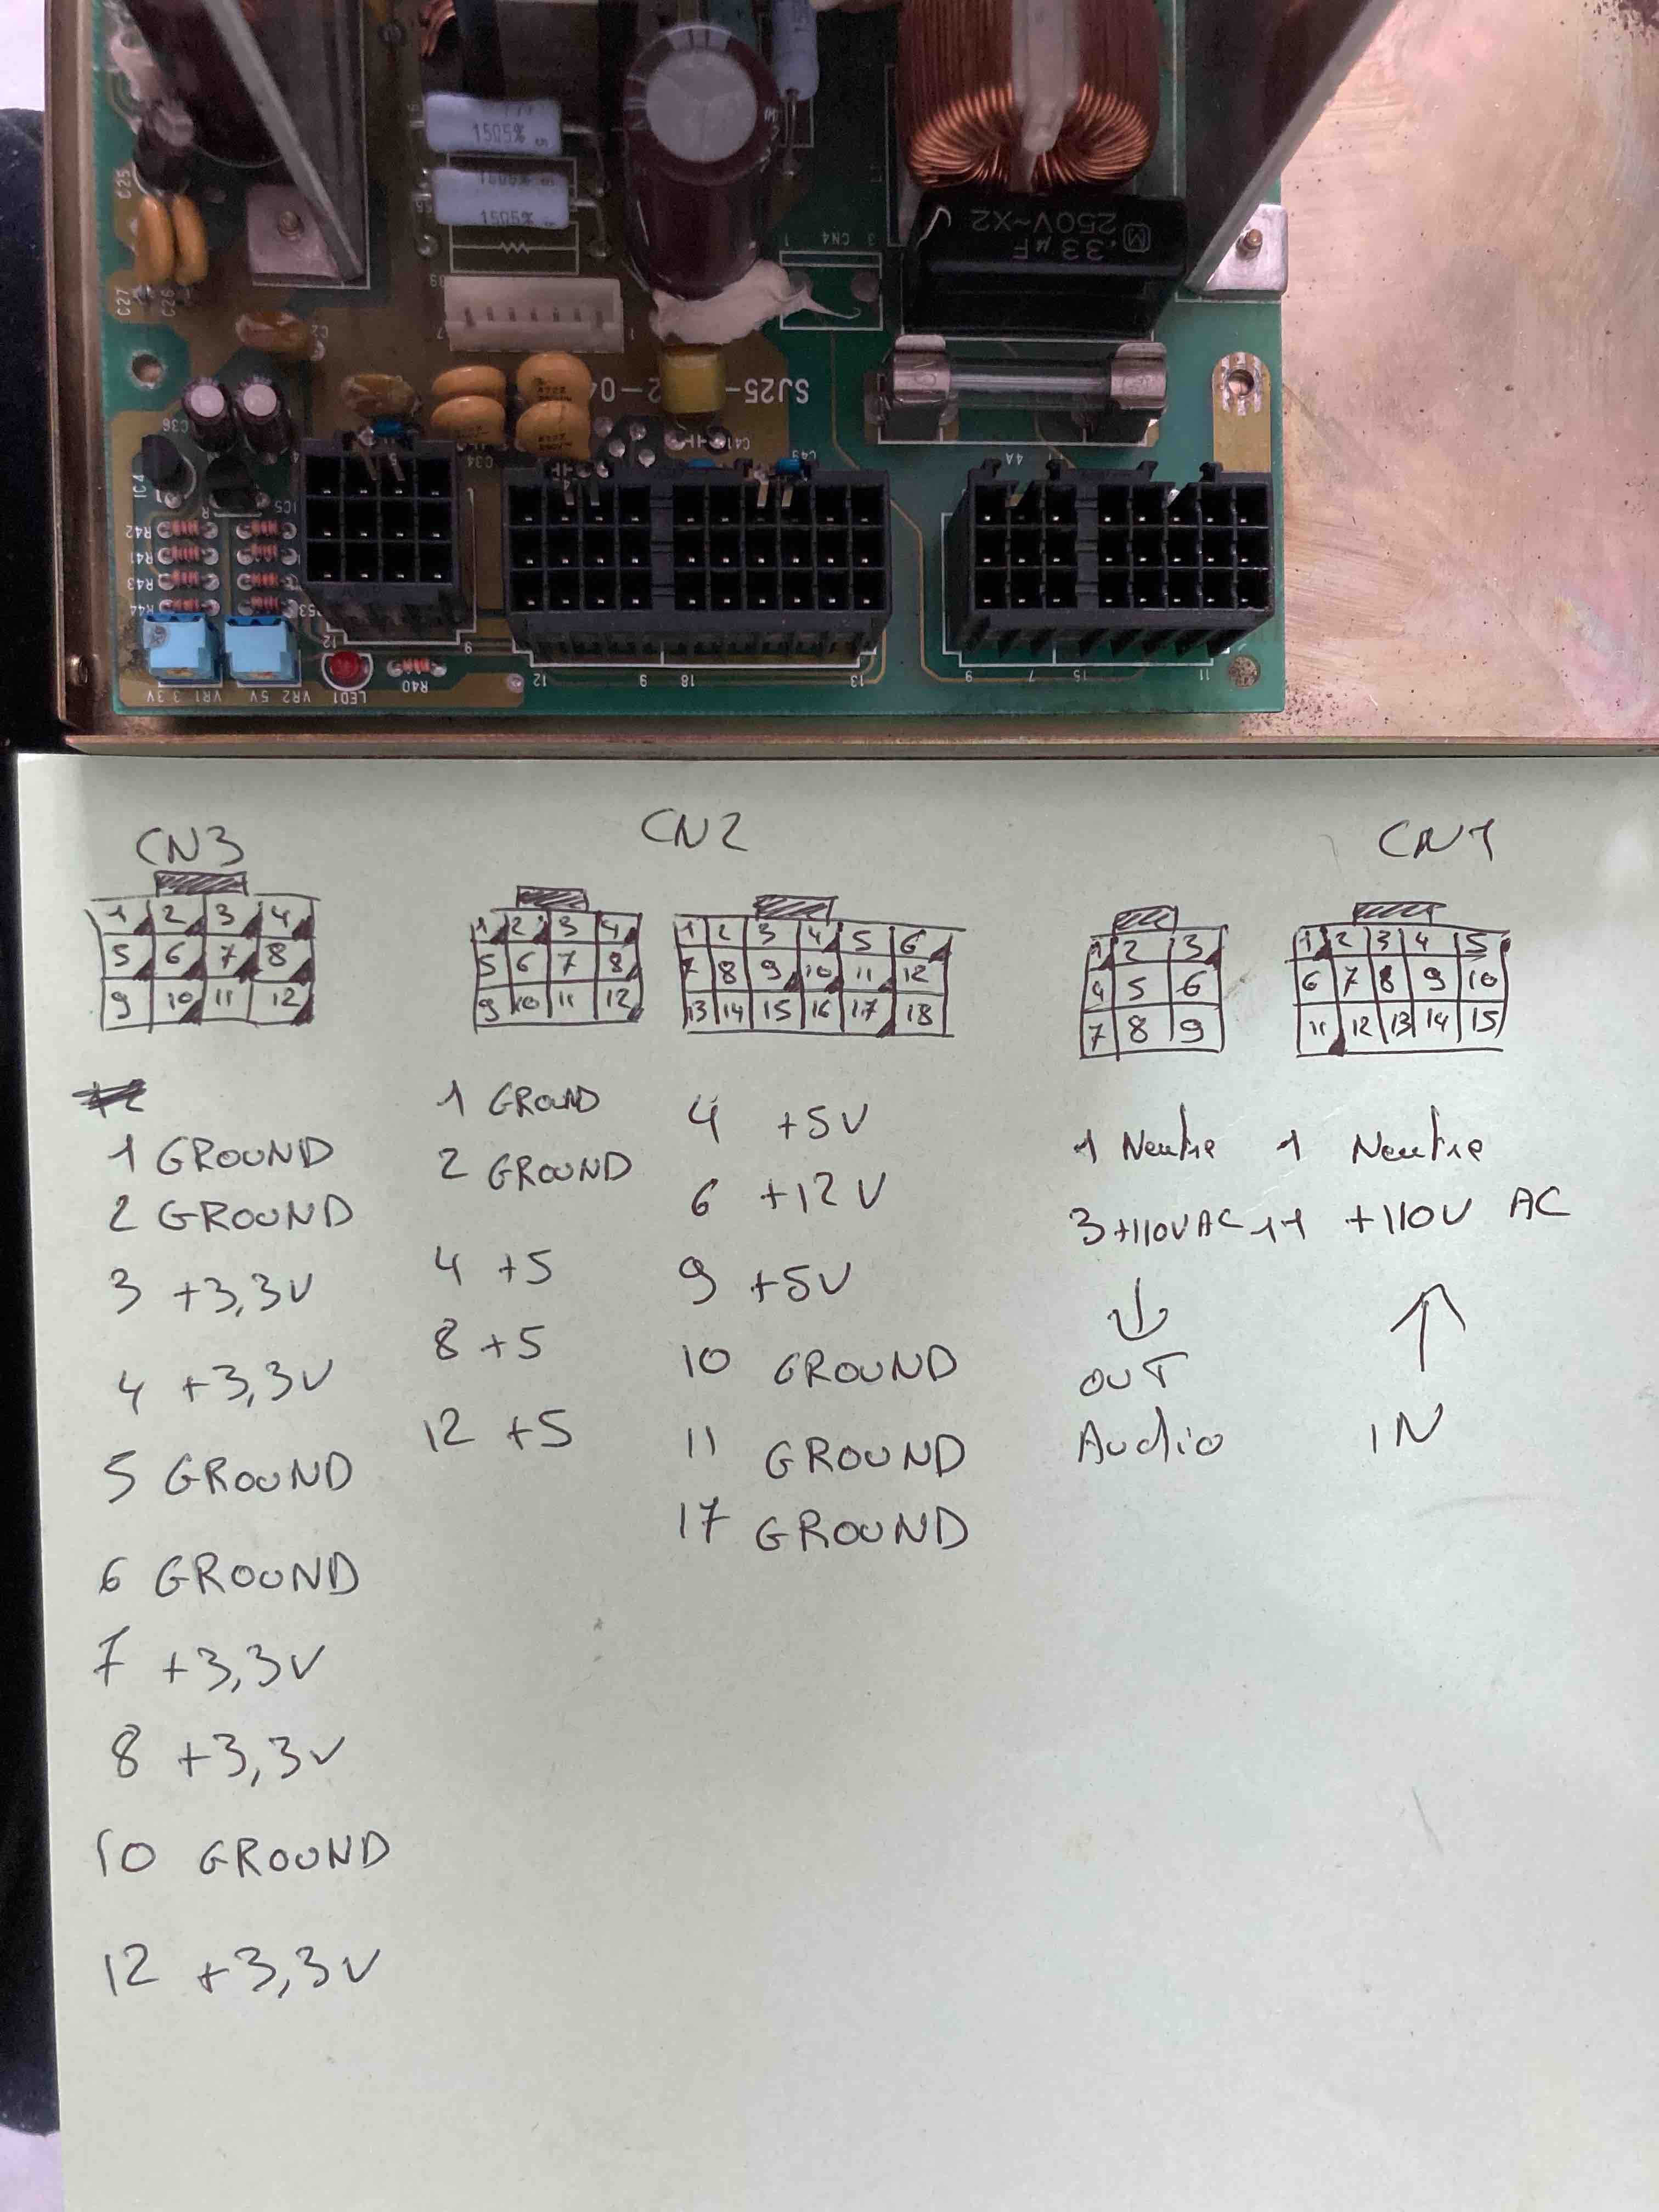 150 5%
150 5%
C25
C27
C26
.33µF
250V~X2
1 CN4 3
7
SJ25-
2-04
C36
IC4
IC5
C34
C41
C49
4A
R42
R41
R43
R44
12
9
12 9 18 13
9 7 15 11
3.3V VR1
5V VR2
LED1
R40
CN3 CN2 CN1
1 2 3 4
5 6 7 8
9 10 11 12
1 2 3 4
5 6 7 8
9 10 11 12
1 2 3 4 5 6
7 8 9 10 11 12
13 14 15 16 17 18
1 2 3
4 5 6
7 8 9
1 2 3 4 5
6 7 8 9 10
11 12 13 14 15
1 GROUND
2 GROUND
3 +3,3V
4 +3,3V
5 GROUND
6 GROUND
7 +3,3V
8 +3,3V
10 GROUND
12 +3,3V
1 GROUND
2 GROUND
4 +5
8 +5
12 +5
4 +5V
6 +12V
9 +5V
10 GROUND
11 GROUND
17 GROUND
1 Neutre
3 +110V AC
OUT
Audio
1 Neutre
11 +110V AC
IN